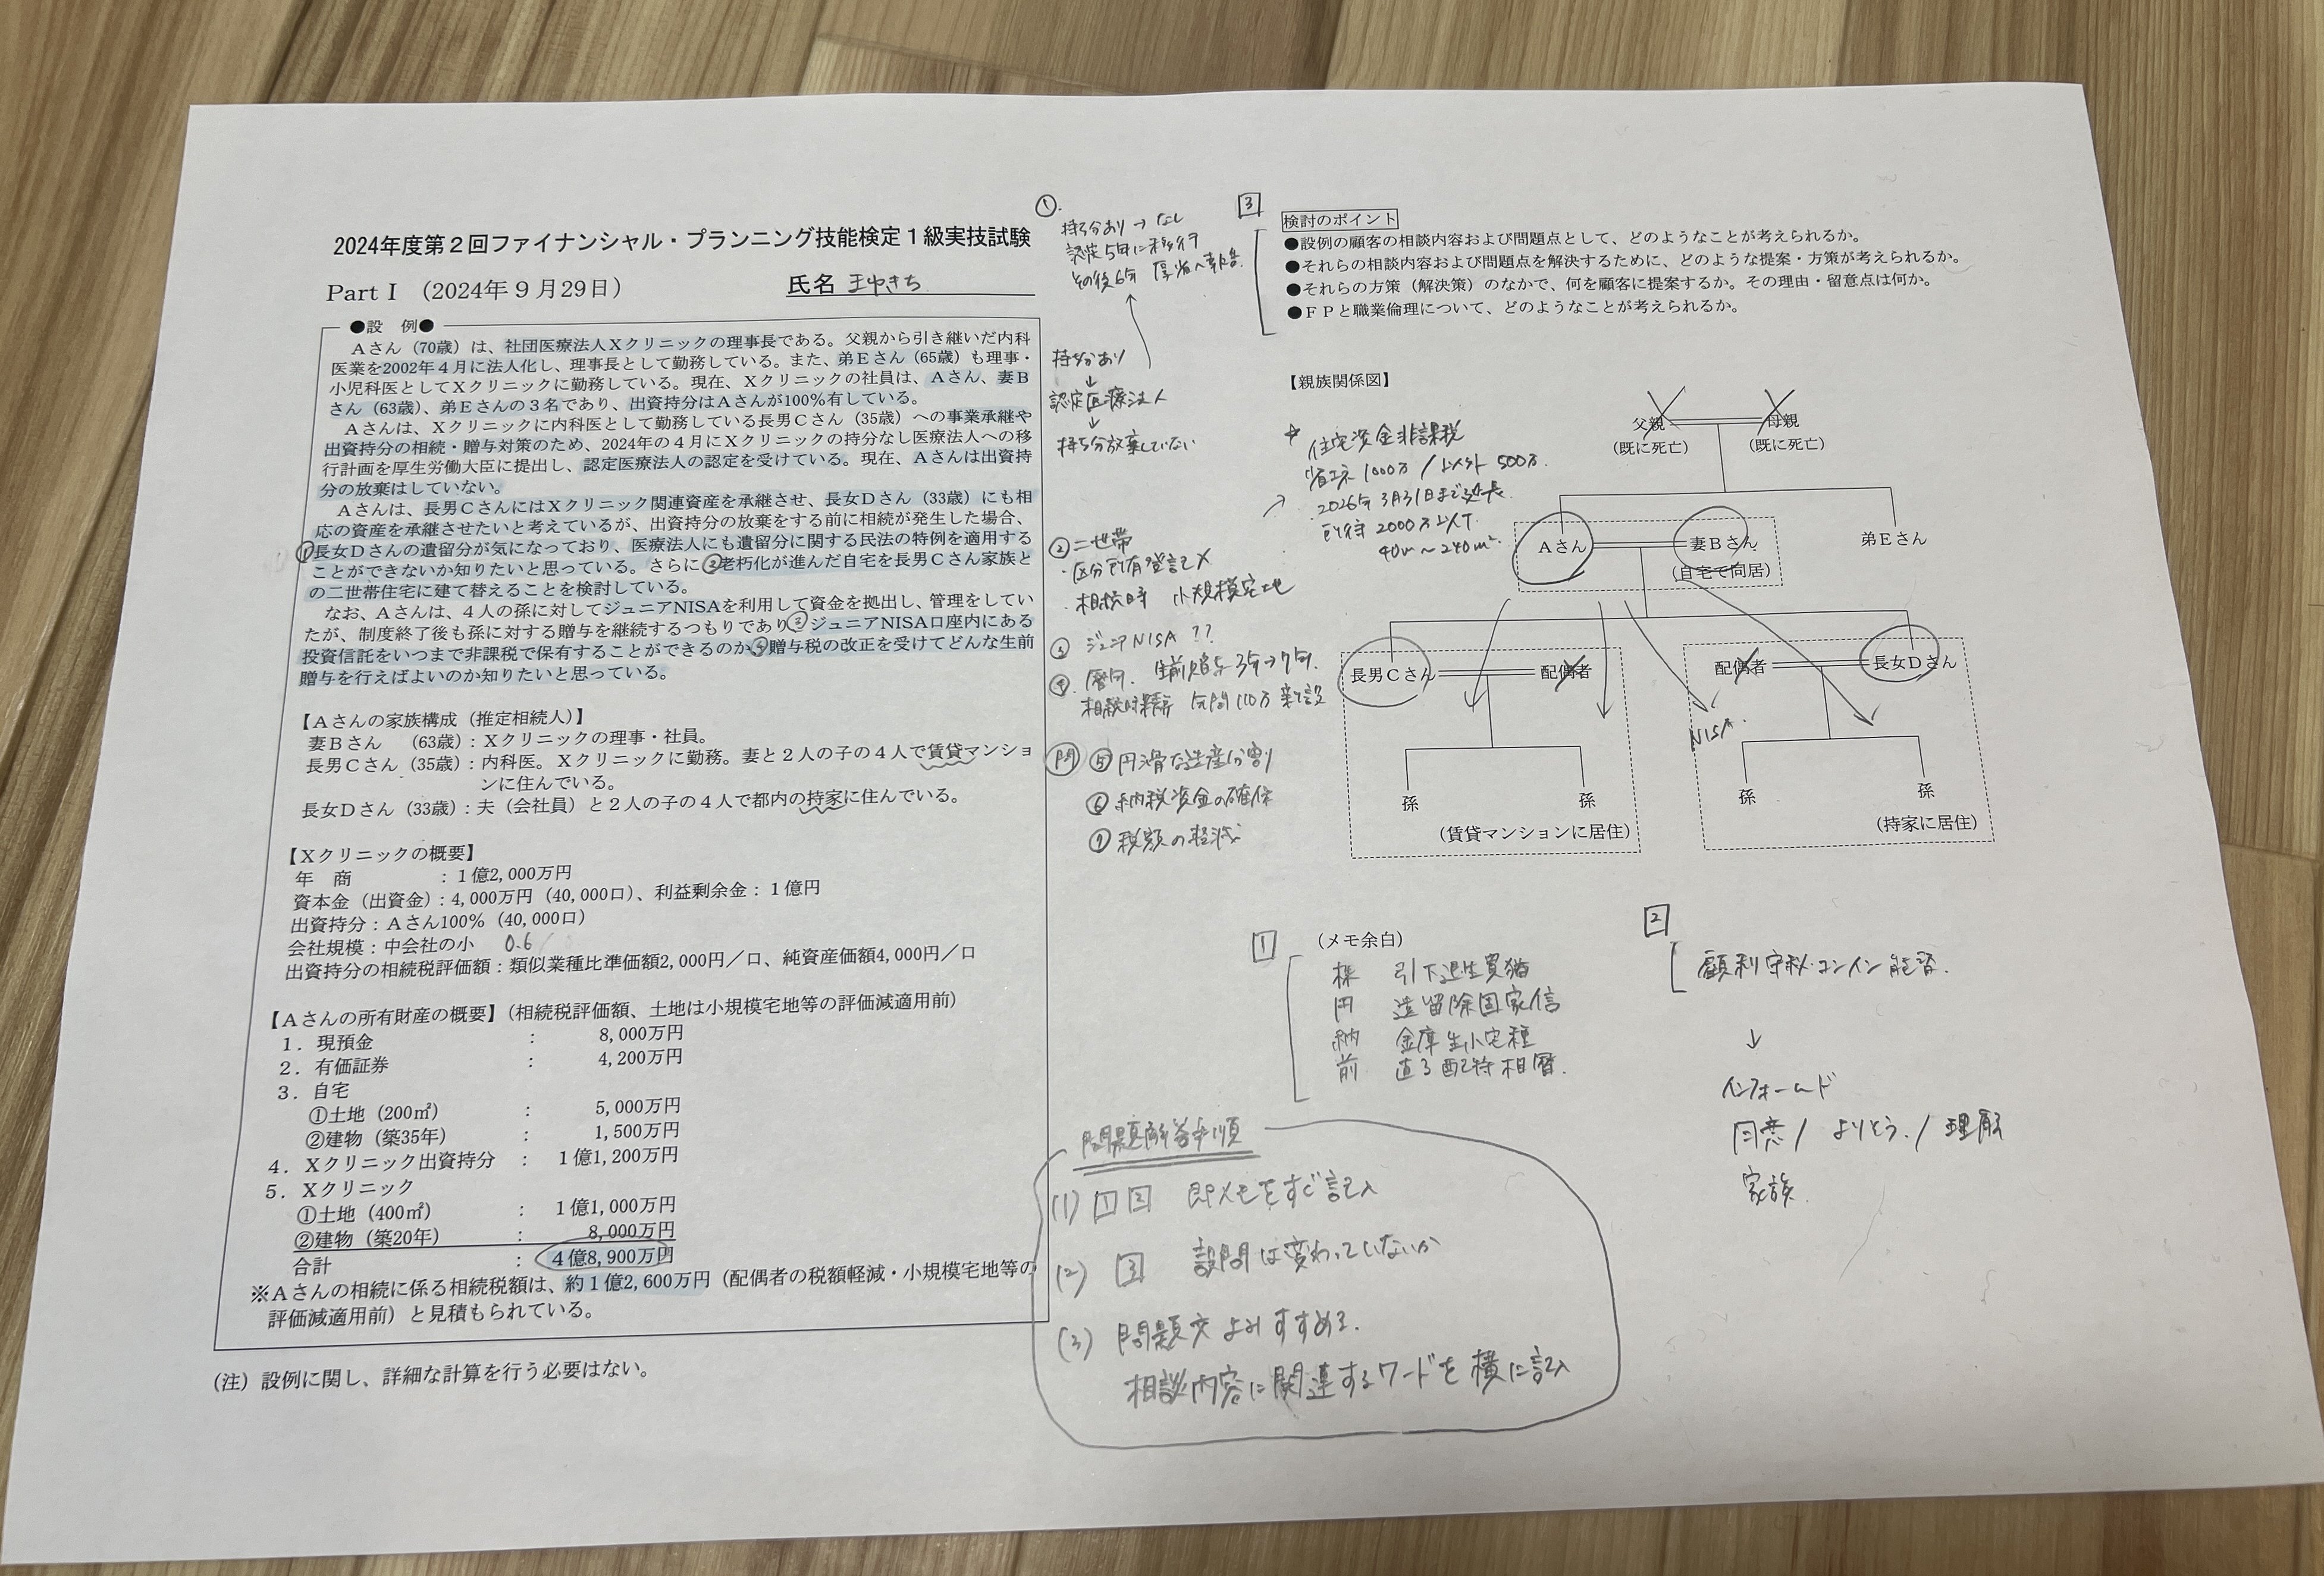 2024年度第２回ファイナンシャル・プランニング技能検定１級実技試験
Part Ⅰ （2024年９月29日）
氏名
●設　例●
Ａさん（70歳）は、社団医療法人Ｘクリニックの理事長である。父親から引き継いだ内科
医業を2002年４月に法人化し、理事長として勤務している。また、弟Ｅさん（65歳）も理事・
小児科医としてＸクリニックに勤務している。現在、Ｘクリニックの社員は、Ａさん、妻Ｂ
さん（63歳）、弟Ｅさんの３名であり、出資持分はＡさんが100％有している。
Ａさんは、Ｘクリニックに内科医として勤務している長男Ｃさん（35歳）への事業承継や
出資持分の相続・贈与対策のため、2024年の４月にＸクリニックの持分なし医療法人への移
行計画を厚生労働大臣に提出し、認定医療法人の認定を受けている。現在、Ａさんは出資持
分の放棄はしていない。
Ａさんは、長男ＣさんにはＸクリニック関連資産を承継させ、長女Ｄさん（33歳）にも相
応の資産を承継させたいと考えているが、出資持分の放棄をする前に相続が発生した場合、
①長女Ｄさんの遺留分が気になっており、医療法人にも遺留分に関する民法の特例を適用する
ことができないか知りたいと思っている。さらに②老朽化が進んだ自宅を長男Ｃさん家族と
の二世帯住宅に建て替えることを検討している。
なお、Ａさんは、４人の孫に対してジュニアNISAを利用して資金を拠出し、管理をしてい
たが、制度終了後も孫に対する贈与を継続するつもりであり③ジュニアNISA口座内にある
投資信託をいつまで非課税で保有することができるのか④贈与税の改正を受けてどんな生前
贈与を行えばよいのか知りたいと思っている。
【Ａさんの家族構成（推定相続人）】
妻Ｂさん　（63歳）：Ｘクリニックの理事・社員。
長男Ｃさん（35歳）：内科医。Ｘクリニックに勤務。妻と２人の子の４人で賃貸マンショ
ンに住んでいる。
長女Ｄさん（33歳）：夫（会社員）と２人の子の４人で都内の持家に住んでいる。
【Ｘクリニックの概要】
年　商　：１億2,000万円
資本金（出資金）：4,000万円（40,000口）、利益剰余金：１億円
出資持分：Ａさん100％（40,000口）
会社規模：中会社の小 0.6
出資持分の相続税評価額：類似業種比準価額2,000円／口、純資産価額4,000円／口
【Ａさんの所有財産の概要】（相続税評価額、土地は小規模宅地等の評価減適用前）
１．現預金　：　8,000万円
２．有価証券　：　4,200万円
３．自宅
①土地（200㎡）　：　5,000万円
②建物（築35年）　：　1,500万円
４．Ｘクリニック出資持分　：　１億1,200万円
５．Ｘクリニック
①土地（400㎡）　：　１億1,000万円
②建物（築20年）　：　8,000万円
合計　：　４億8,900万円
※Ａさんの相続に係る相続税額は、約１億2,600万円（配偶者の税額軽減・小規模宅地等の
評価減適用前）と見積もられている。
（注）設例に関し、詳細な計算を行う必要はない。
①
持ち分あり → なし
認定 5年に移行
その後6年 厚労省へ報告
持ち分あり
↓
認定医療法人
↓
持ち分放棄していない
②二世帯
・区分所有登記×
・相続時 小規模宅地
③ ジュニアNISA ??
④ 暦年. 生前贈与 3年→7年.
相続時精算 年間110万 新設
問 ⑤円滑な遺産分割
⑥ 納税資金の確保
⑦ 税額の軽減
3
検討のポイント
●設例の顧客の相談内容および問題点として、どのようなことが考えられるか。
●それらの相談内容および問題点を解決するために、どのような提案・方策が考えられるか。
●それらの方策（解決策）のなかで、何を顧客に提案するか。その理由・留意点は何か。
●ＦＰと職業倫理について、どのようなことが考えられるか。
【親族関係図】
住宅資金非課税
省エネ 1000万 / 以外 500万.
2026年 3月31日まで延長
所得 2000万以下
40㎡～240㎡
父親
（既に死亡）
母親
（既に死亡）
Ａさん
妻Ｂさん
（自宅で同居）
弟Ｅさん
長男Ｃさん
配偶者
配偶者
長女Ｄさん
NISA
孫
孫
孫
孫
（賃貸マンションに居住）
（持家に居住）
1
（メモ余白）
株 引下退生買猶
円 遺留除国家信
納 金庫生小宅種
前 直3配2特相暦.
2
顧利守秘コンイン能習.
↓
インフォームド
同意 / よりそう. / 理解
家族.
問題解答手順
(1) 1 2 即メモをすぐ記入
(2) 3 設問は変わっていないか
(3) 問題文よみすすめる.
相談内容に関連するワードを横に記入